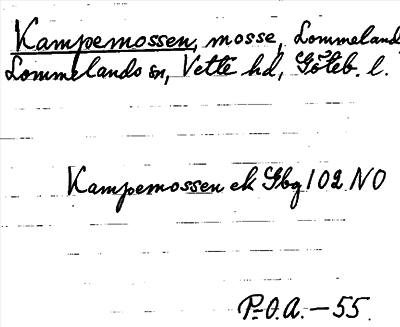 Kampemossen, mosse, Lommeland,
Lommelands sn, Vette hd, Göteb. l.
Kampemossen ek Gbg 102 NO
P-O.A. - 55.